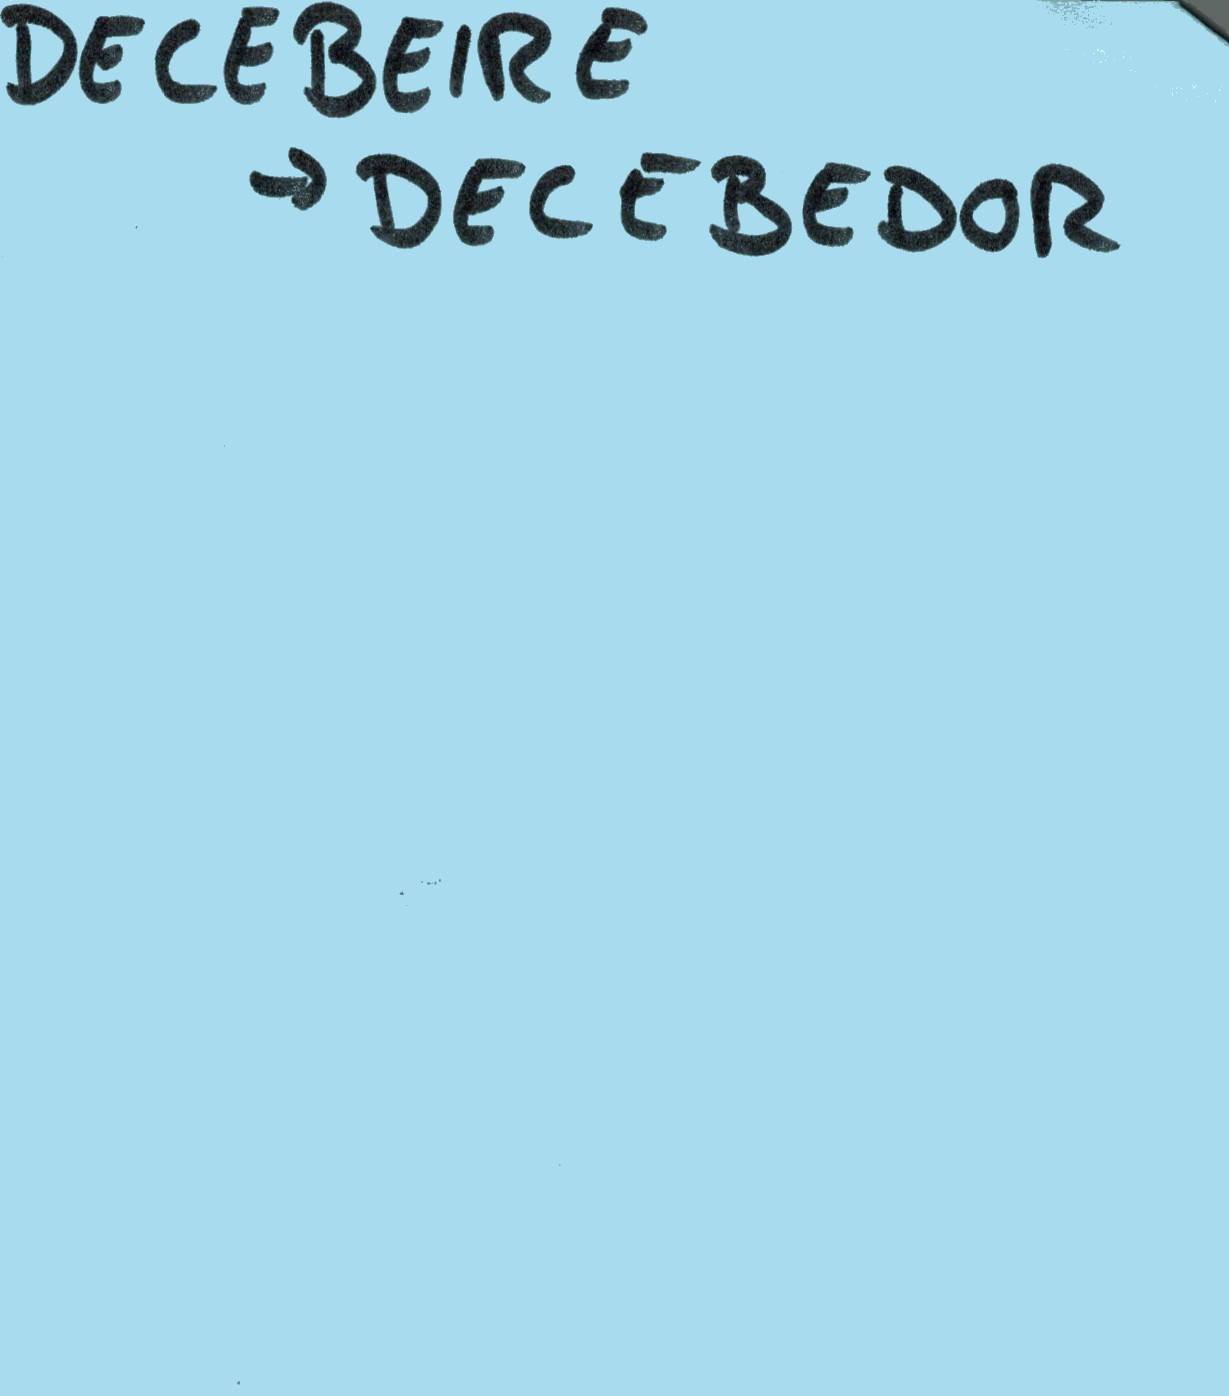 DECEBEIRE
→ DECEBEDOR